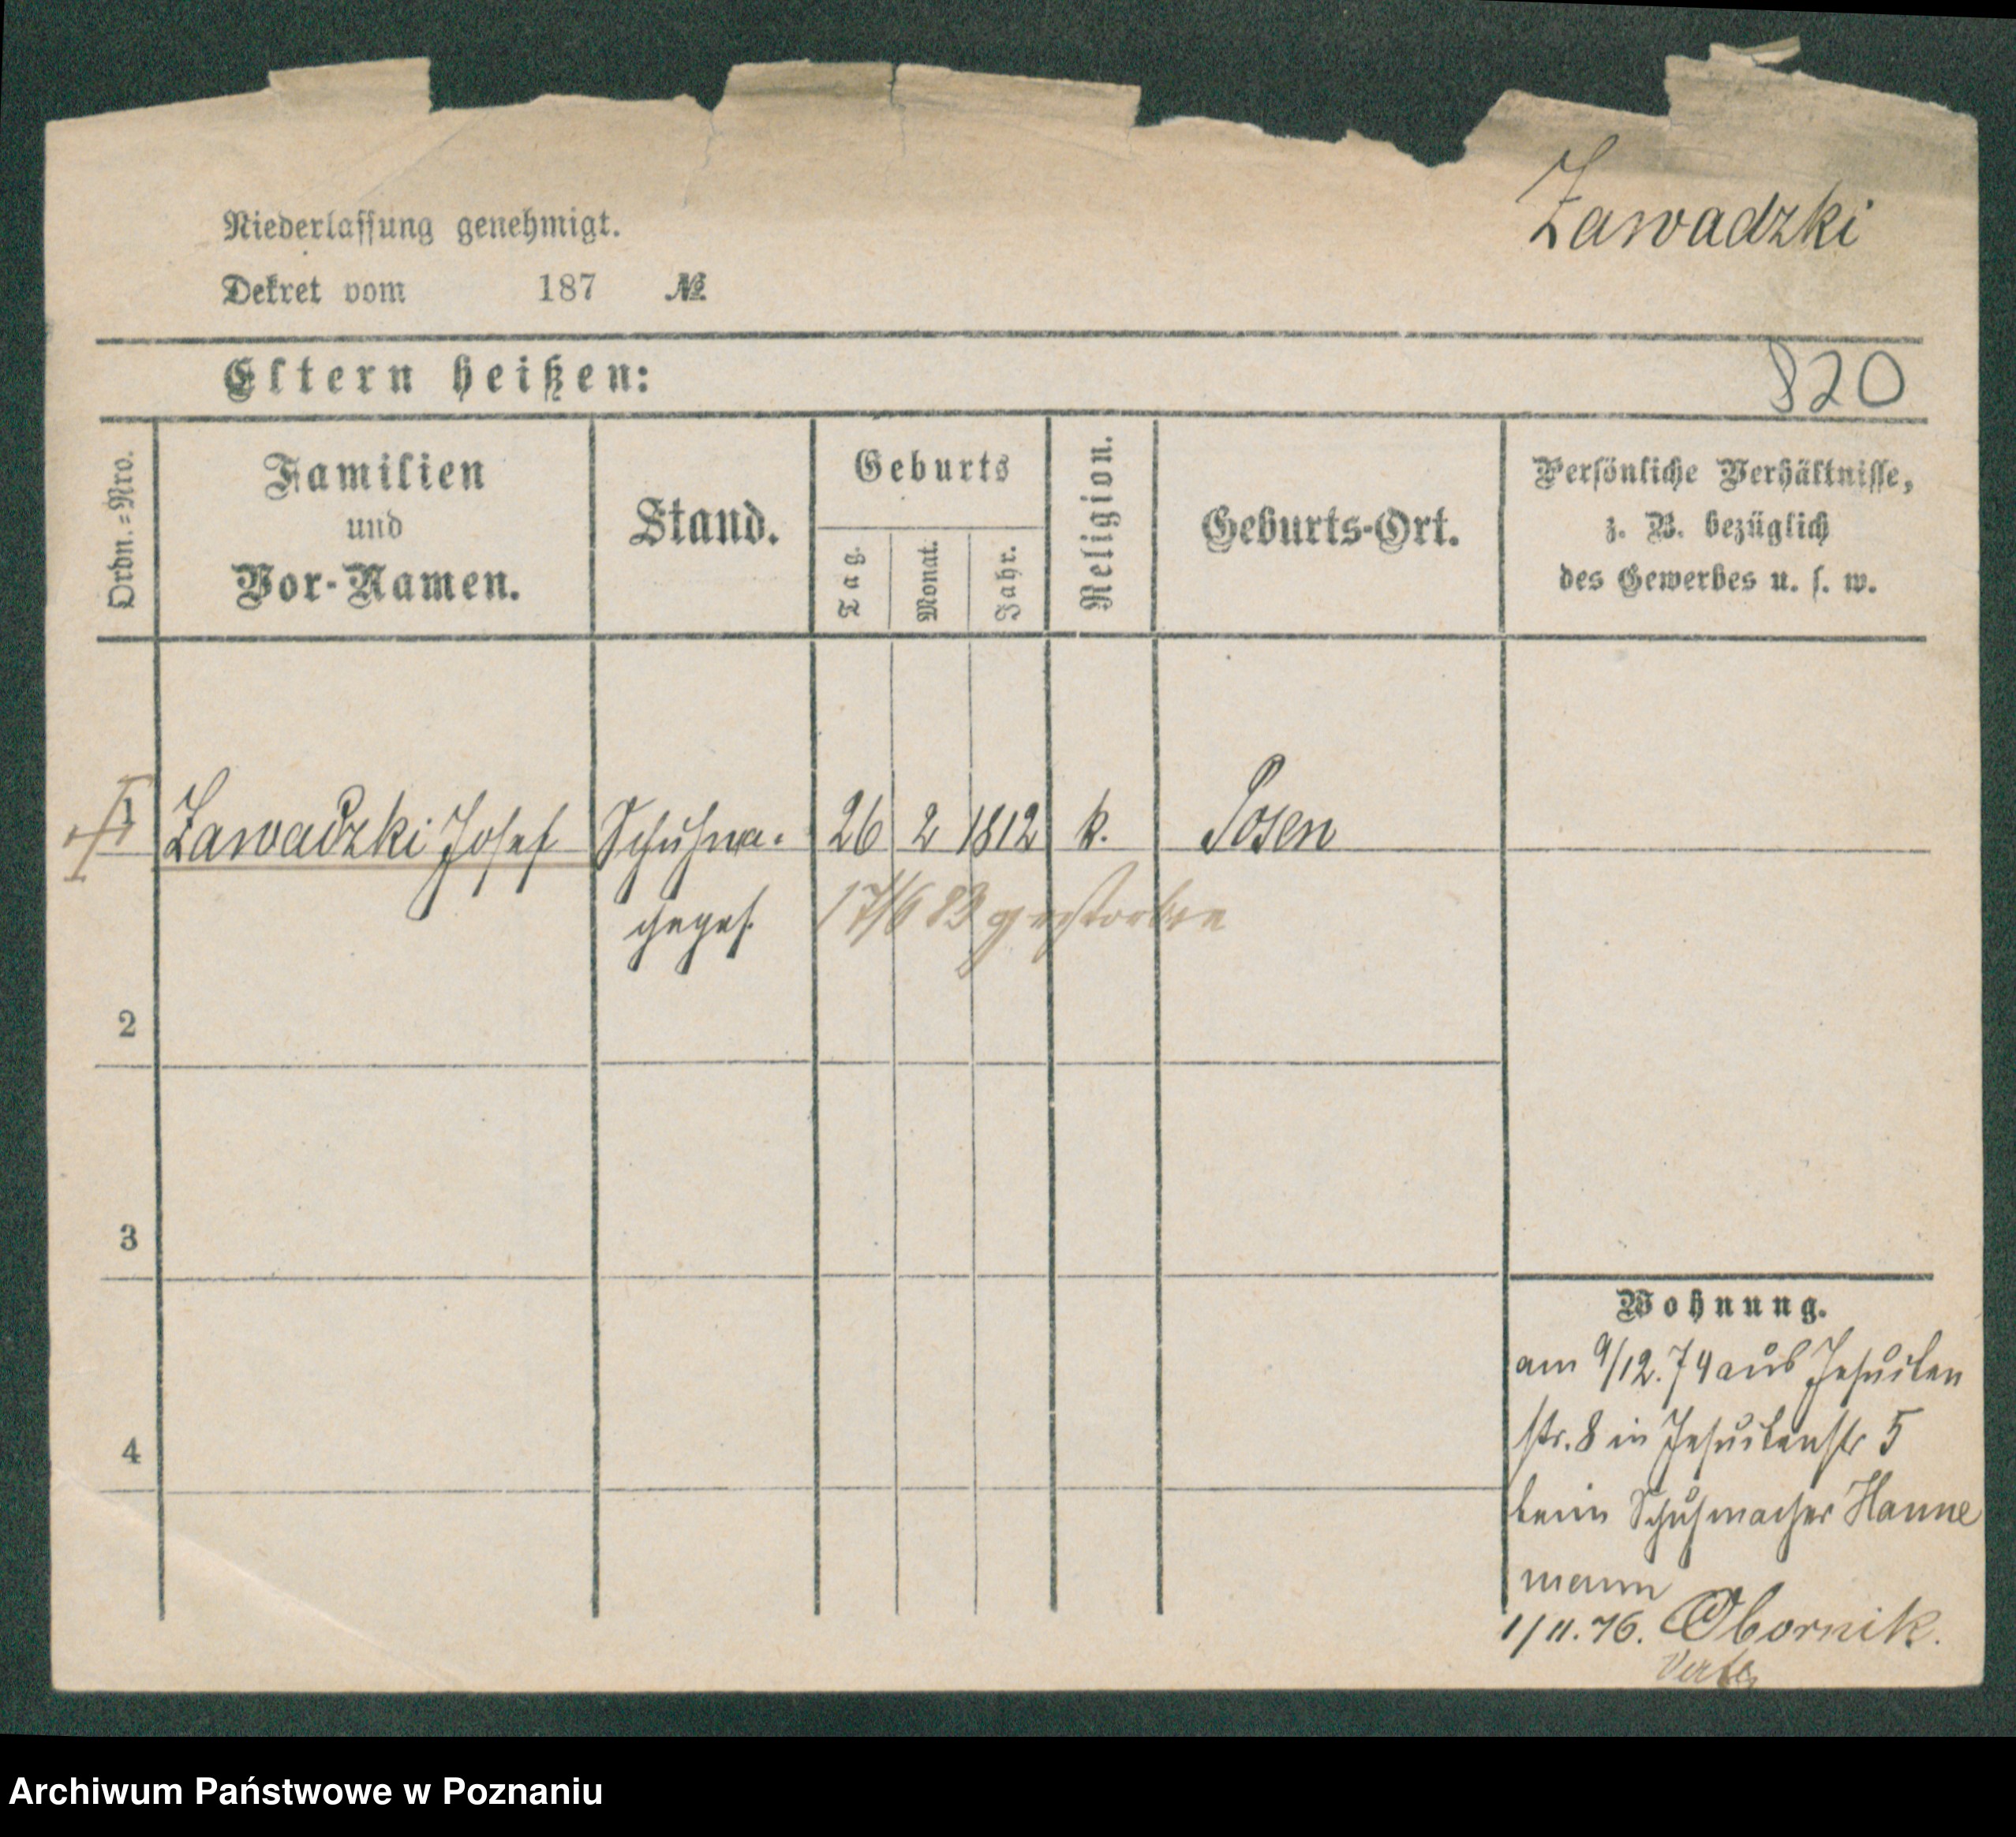 Zawadzki
Niederlassung genehmigt.
Dekret vom 187 №
Eltern heißen:
820
Ordn.-Nro.
Familien
und
Vor-Namen.
Stand.
Geburts
Tag.
Monat.
Jahr.
Religion.
Geburts-Ort.
Persönliche Verhältnisse,
z. B. bezüglich
des Gewerbes u. s. w.
1 Zawadzki Josef Schuhma- 26 2 1812 k. Posen
17/6 83 gestorben
2
3
4
Wohnung.
am 9/12.74 aus Jesuiten
str. 8 in Jesuitenstr 5
beim Schuhmacher Hanne
mann
1/11.76. Obornik.
Archiwum Państwowe w Poznaniu